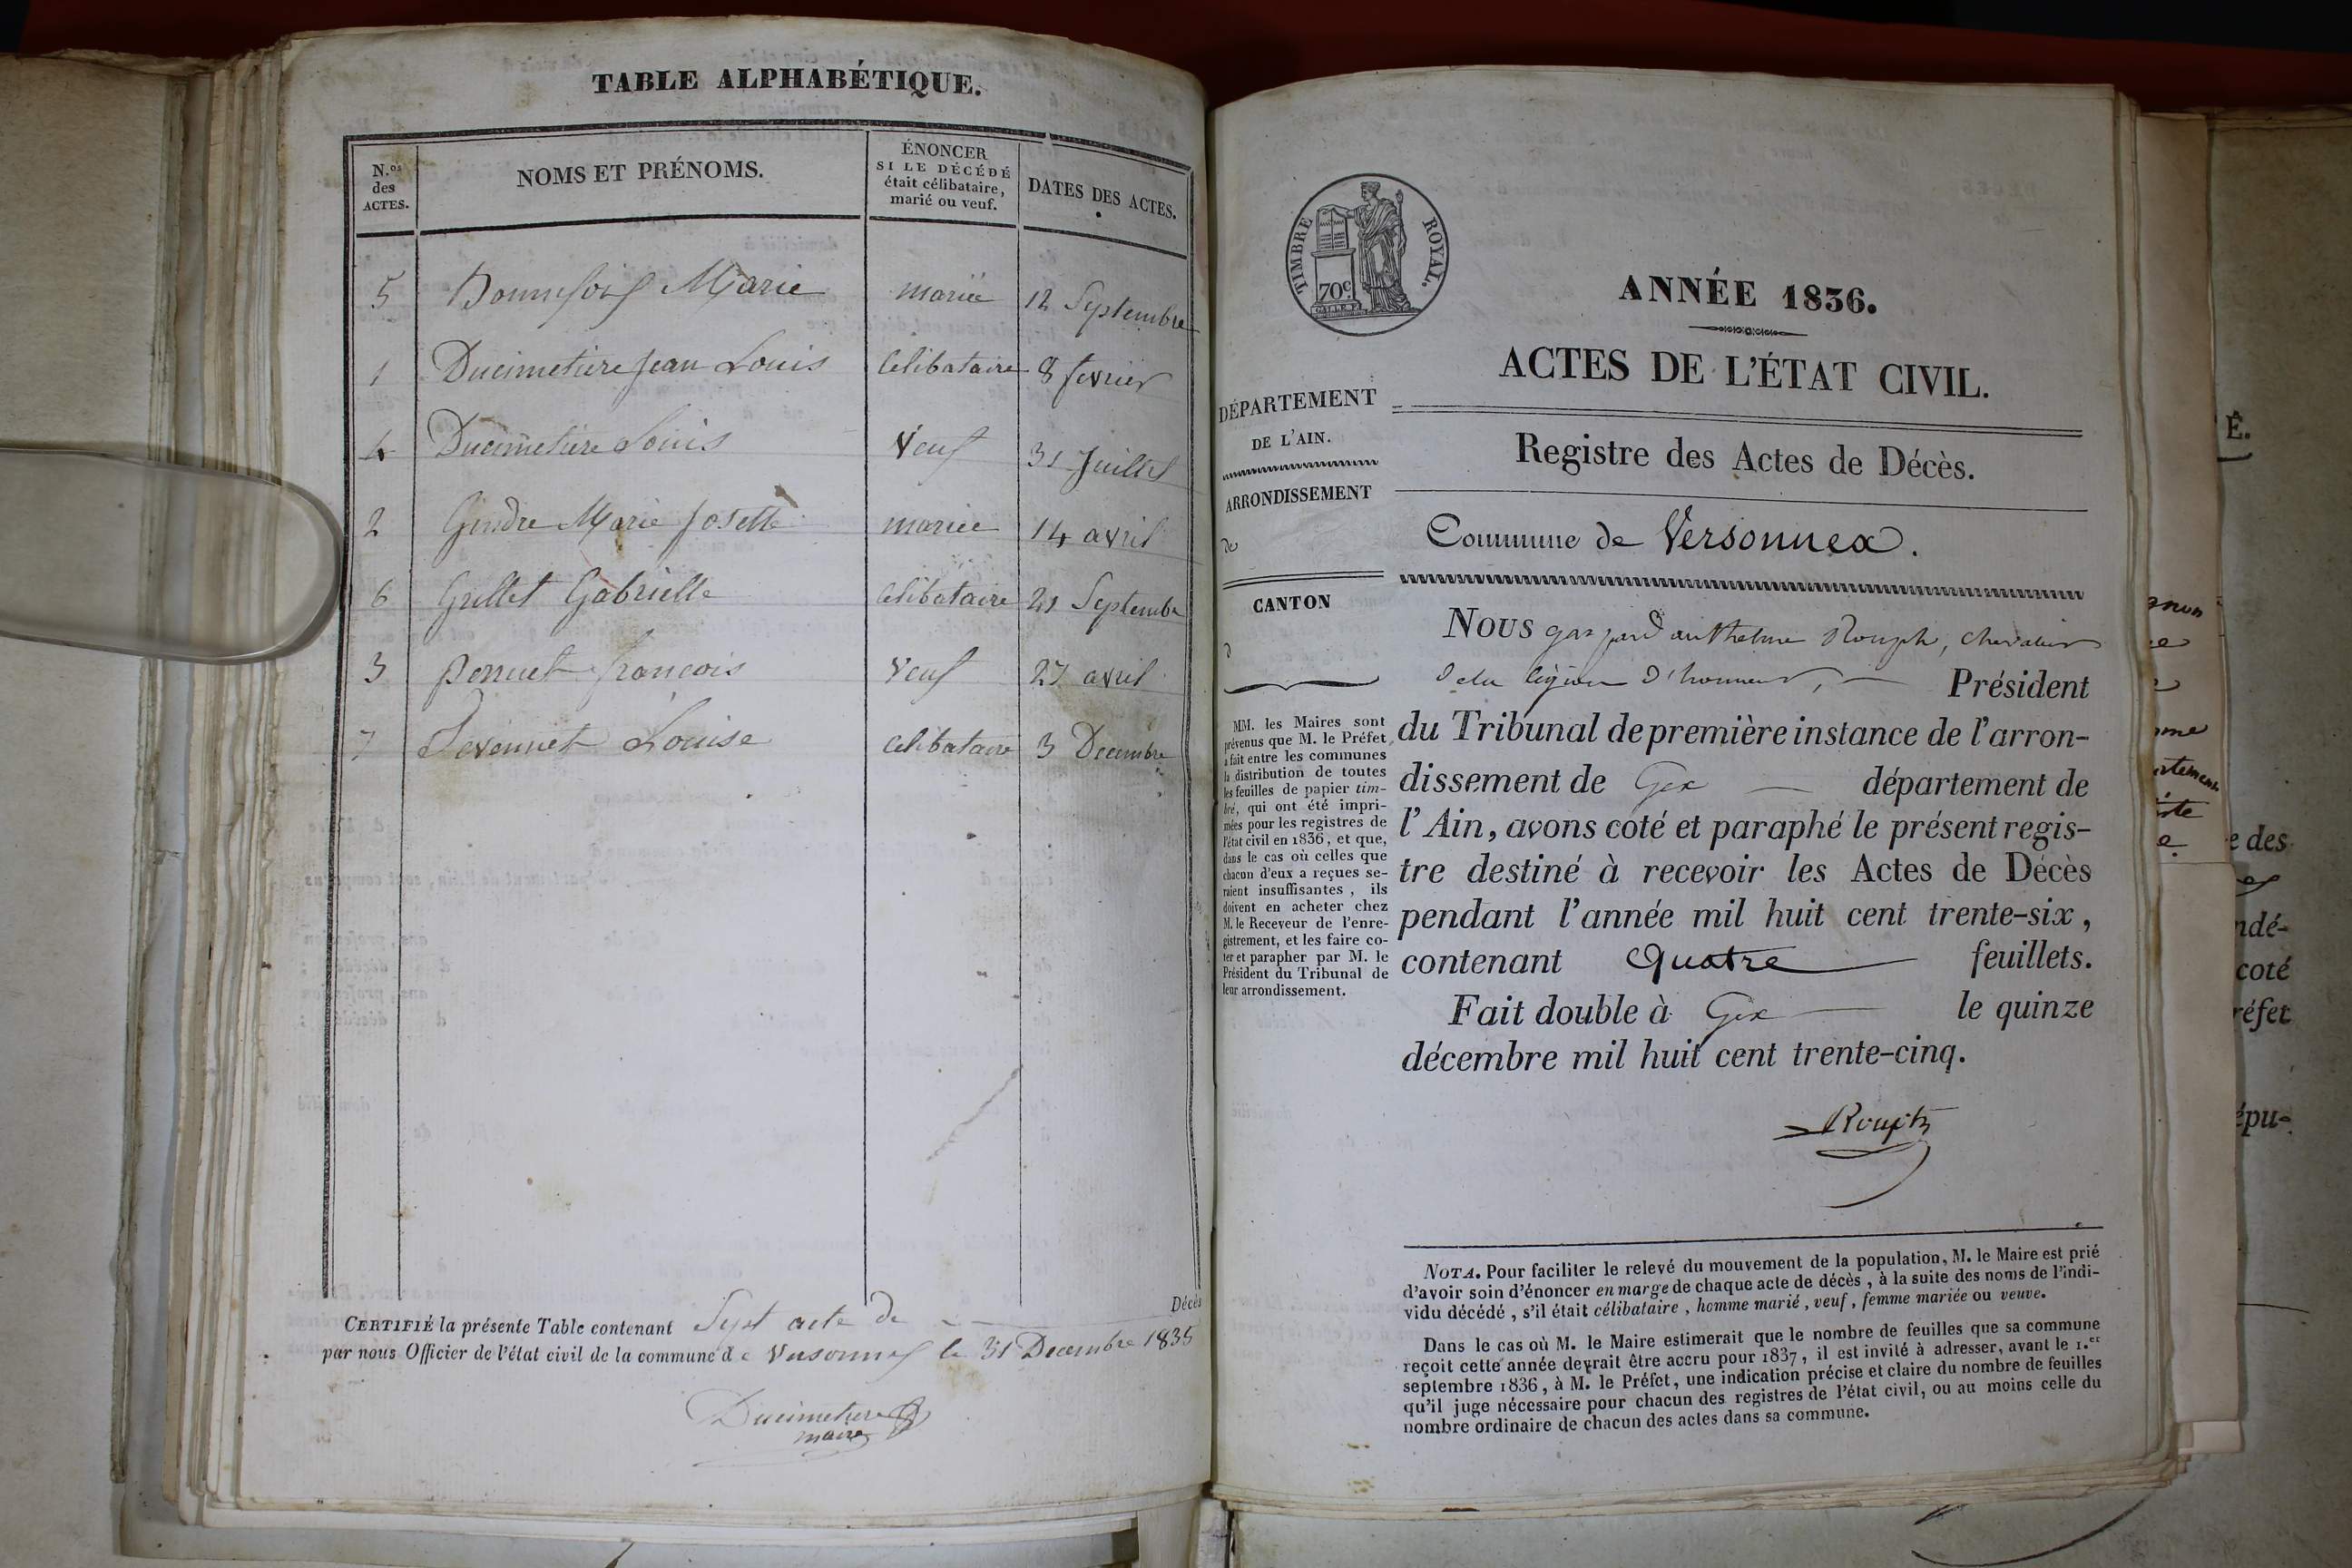 TABLE ALPHABÉTIQUE.
N.os des ACTES.
NOMS ET PRÉNOMS.
ÉNONCER
SI LE DÉCÉDÉ
était célibataire,
marié ou veuf.
DATES DES ACTES.
5 Bonnefois Marie mariée 12 Septembre
1 Ducimetière Jean Louis Celibataire 8 fevrier
4 Ducimetière Louis Veuf 31 Juillet
2 Gindre Marie Josette mariée 14 avril
6 Grillet Gabrielle Celibataire 21 Septembre
3 Perruet françois Veuf 27 avril
7 Louise Celibataire 3 Decembre
Décès
CERTIFIÉ la présente Table contenant Sept acte de
par nous Officier de l'état civil de la commune de Versonnex le 31 Decembre 1835
Ducimetiere
maire
TIMBRE ROYAL.
70c
ANNÉE 1836.
ACTES DE L'ÉTAT CIVIL.
DÉPARTEMENT
DE L'AIN.
ARRONDISSEMENT
de
CANTON
d
MM. les Maires sont
prévenus que M. le Préfet
a fait entre les communes
la distribution de toutes
les feuilles de papier tim-
bré, qui ont été impri-
mées pour les registres de
l'état civil en 1836, et que,
dans le cas où celles que
chacun d'eux a reçues se-
raient insuffisantes, ils
doivent en acheter chez
M. le Receveur de l'enre-
gistrement, et les faire co-
ter et parapher par M. le
Président du Tribunal de
leur arrondissement.
Registre des Actes de Décès.
Commune de Versonnex.
NOUS gaspard anthelme Rouph, chevalier
de la légion d'honneur, Président
du Tribunal de première instance de l'arron-
dissement de Gex département de
l'Ain, avons coté et paraphé le présent regis-
tre destiné à recevoir les Actes de Décès
pendant l'année mil huit cent trente-six,
contenant quatre feuillets.
Fait double à Gex le quinze
décembre mil huit cent trente-cinq.
Rouph
NOTA. Pour faciliter le relevé du mouvement de la population, M. le Maire est prié
d'avoir soin d'énoncer en marge de chaque acte de décès, à la suite des noms de l'indi-
vidu décédé, s'il était célibataire, homme marié, veuf, femme mariée ou veuve.
Dans le cas où M. le Maire estimerait que le nombre de feuilles que sa commune
reçoit cette année devrait être accru pour 1837, il est invité à adresser, avant le 1.er
septembre 1836, à M. le Préfet, une indication précise et claire du nombre de feuilles
qu'il juge nécessaire pour chacun des registres de l'état civil, ou au moins celle du
nombre ordinaire de chacun des actes dans sa commune.
É.
e des
ndé-
coté
réfet
épu-